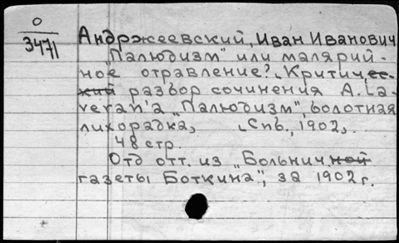 О
3471
Андржеевский, Иван Иванович
„Палюдизм" или малярий-
ное отравление? Критичес-
кий разбор сочинения A. La-
veran'a „Палюдизм", болотная
лихорадка, Спб., 1902,
48 стр.
Отд отт. из „Больничной
газеты Боткина", за 1902 г.